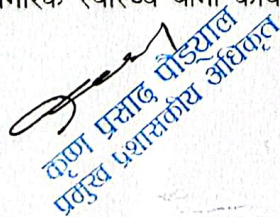 स्वास्थ्य
कृष्ण प्रसाद पौड्याल
प्रमुख प्रशासकीय अधिकृत